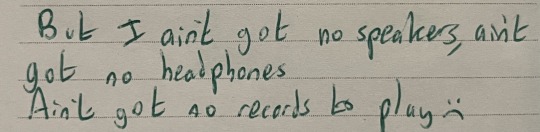 But I ain't got no speakers, ain't
got no headphones
Ain't got no records to play :(